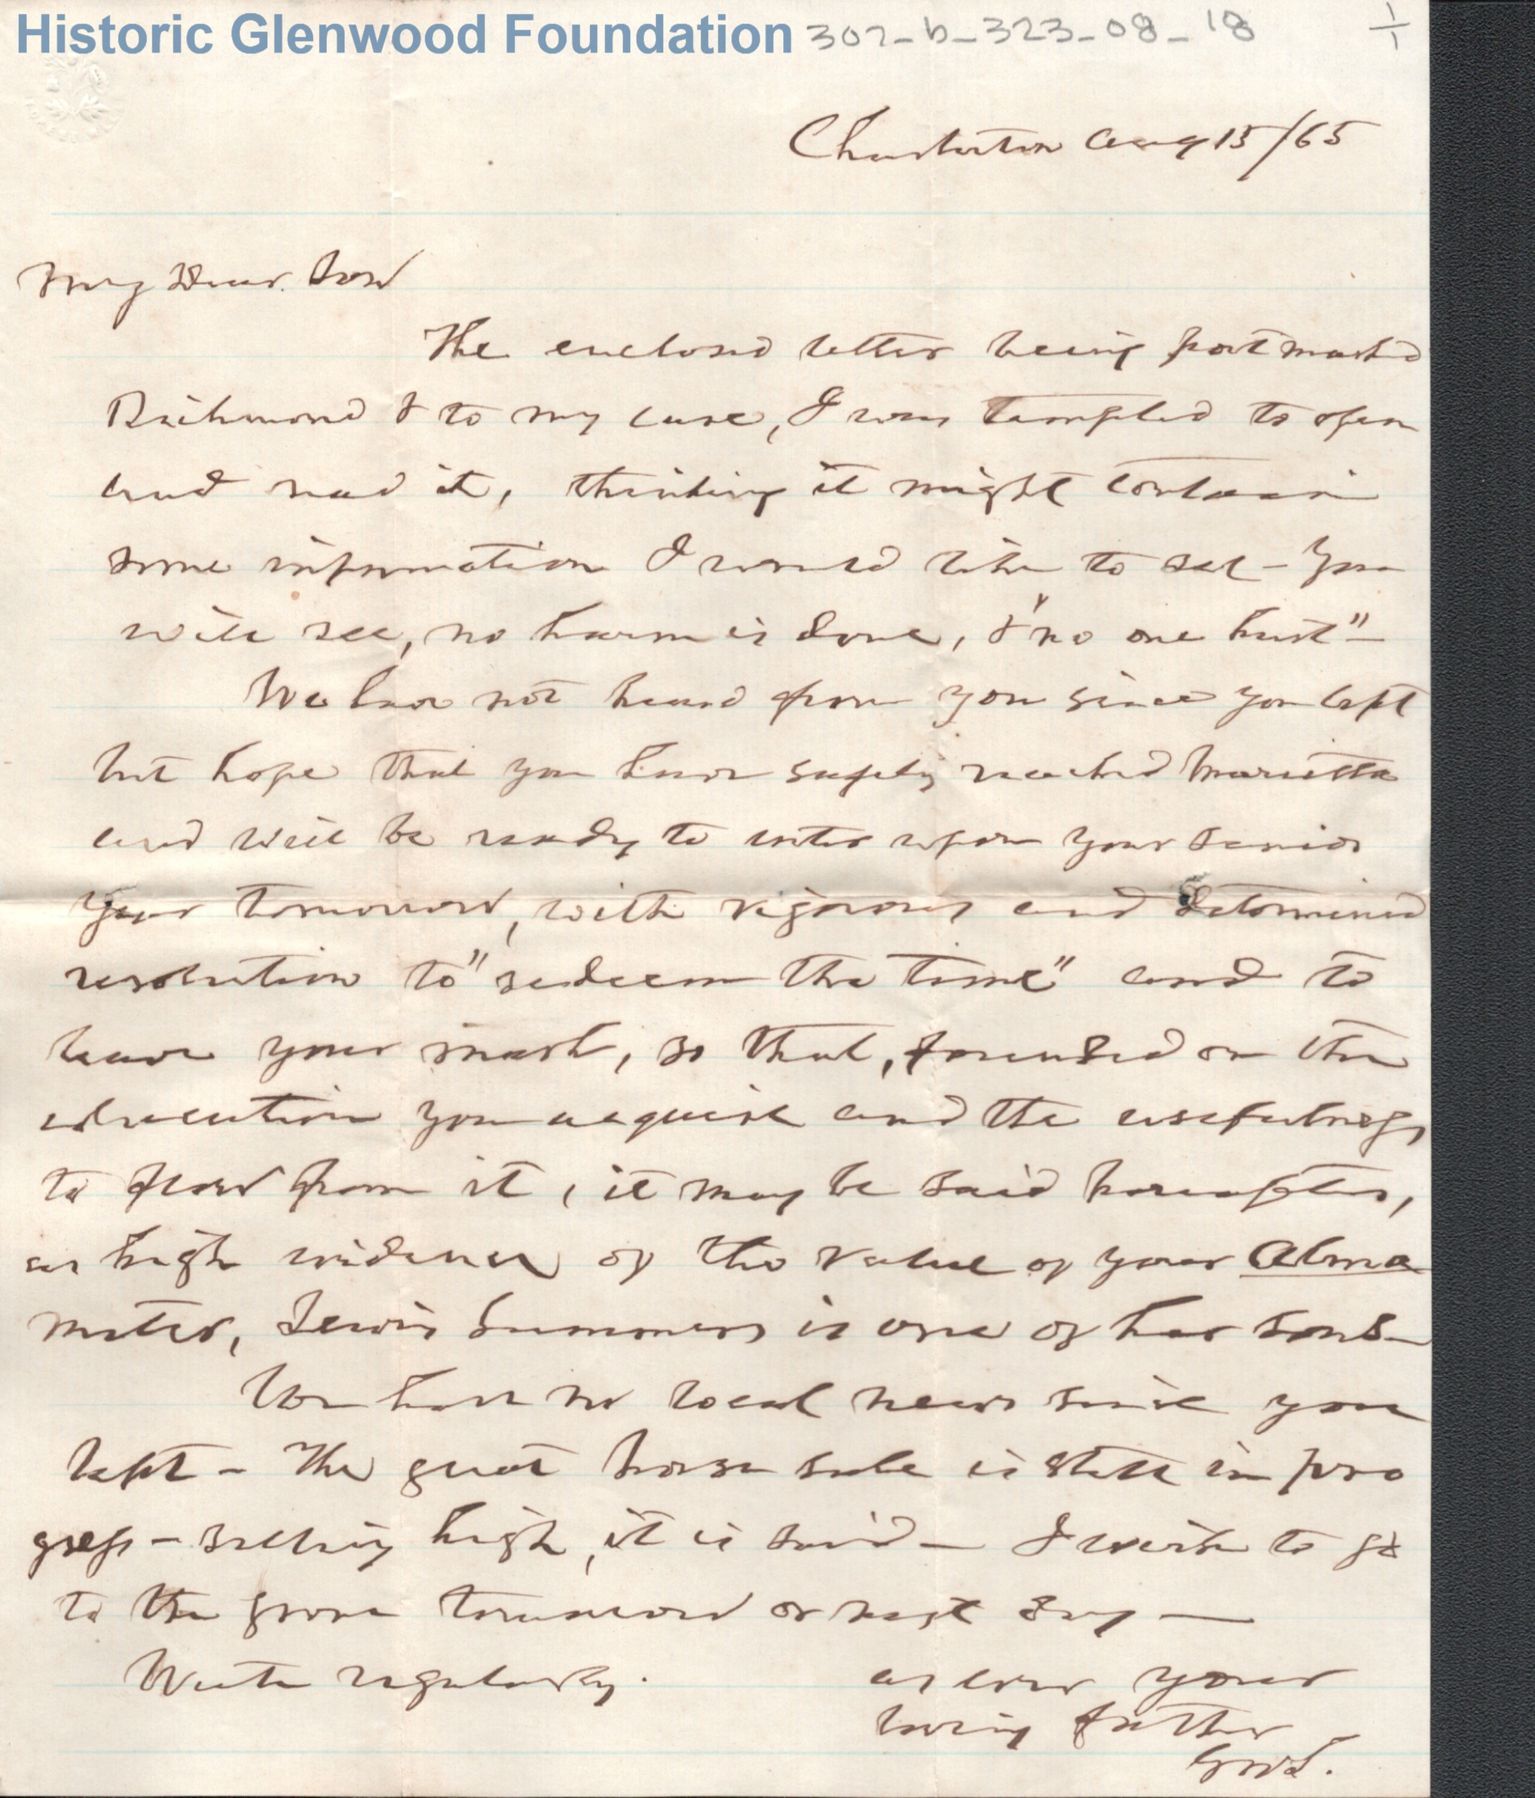 Historic Glenwood Foundation 307_b_323_08_18 1/1
Charleston Aug 15/65
My Dear Son
The enclosed letter being post marked
Richmond & to my care, I was tempted to open
and read it, thinking it might contain
some information I would like to see - You
will see, no harm is done, & "no one hurt" -
We have not heard from you since you left
but hope that you have safely reached Marietta
and will be ready to enter upon your senior
year tomorrow, with vigorous and determined
resolution to "redeem the time" and to
leave your mark, so that, founded on the
education you acquire and the usefulness
to flow from it, it may be said hereafter,
as high evidence of the value of your Alma
Mater, Lewis Summers is one of her sons -
We have no local news since you
left - The great horse sale is still in pro
gress - selling high, it is said - I wish to go
to the grove tomorrow or next day -
Write regularly. as ever your
loving father
GWS.